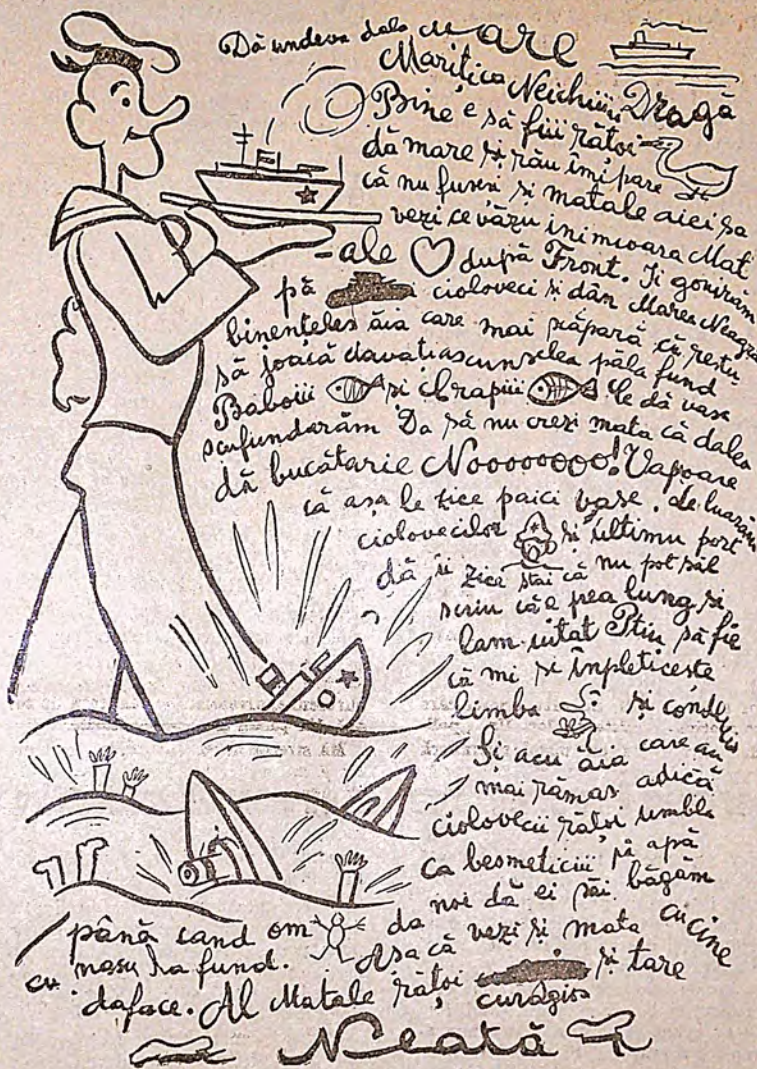 Dă undeva dala mare
Marițica Neichiiii Dragă
Bine e să fiii rățoi
dă mare și rău îmi pare
că nu fuseși și matale aici sa
vezi ce văzu inimioara Mat
-ale după Front. Ii gonirăm
pă cioloveci și dân Marea Neagră
binențeles ăia care mai scăpară cu restu
să joacă davațiascunselea păla fund
Baboiii și Crapiii Le dă vase
scufundarăm Da să nu crezi mata că dalea
dă bucătarie Noooooooo! Vapoare
că așa le zice paici vase. de luarăm
ciolovecilor și ultimu port
dă ii zice stai că nu pot săl
scriu că e prea lung și
lam uitat Știu să fie
că mi se înpleticește
limba și condeiu
Și acu ăia care au
mai rămas adică
ciolovecii rățoi umbla
ca besmeticiii pă apă
până cand om da noi dă ei săi băgăm
cu nasu la fund. Așa că vezi și mata cu cine
daface. Al Matale rățoi și tare
curagios
Neată